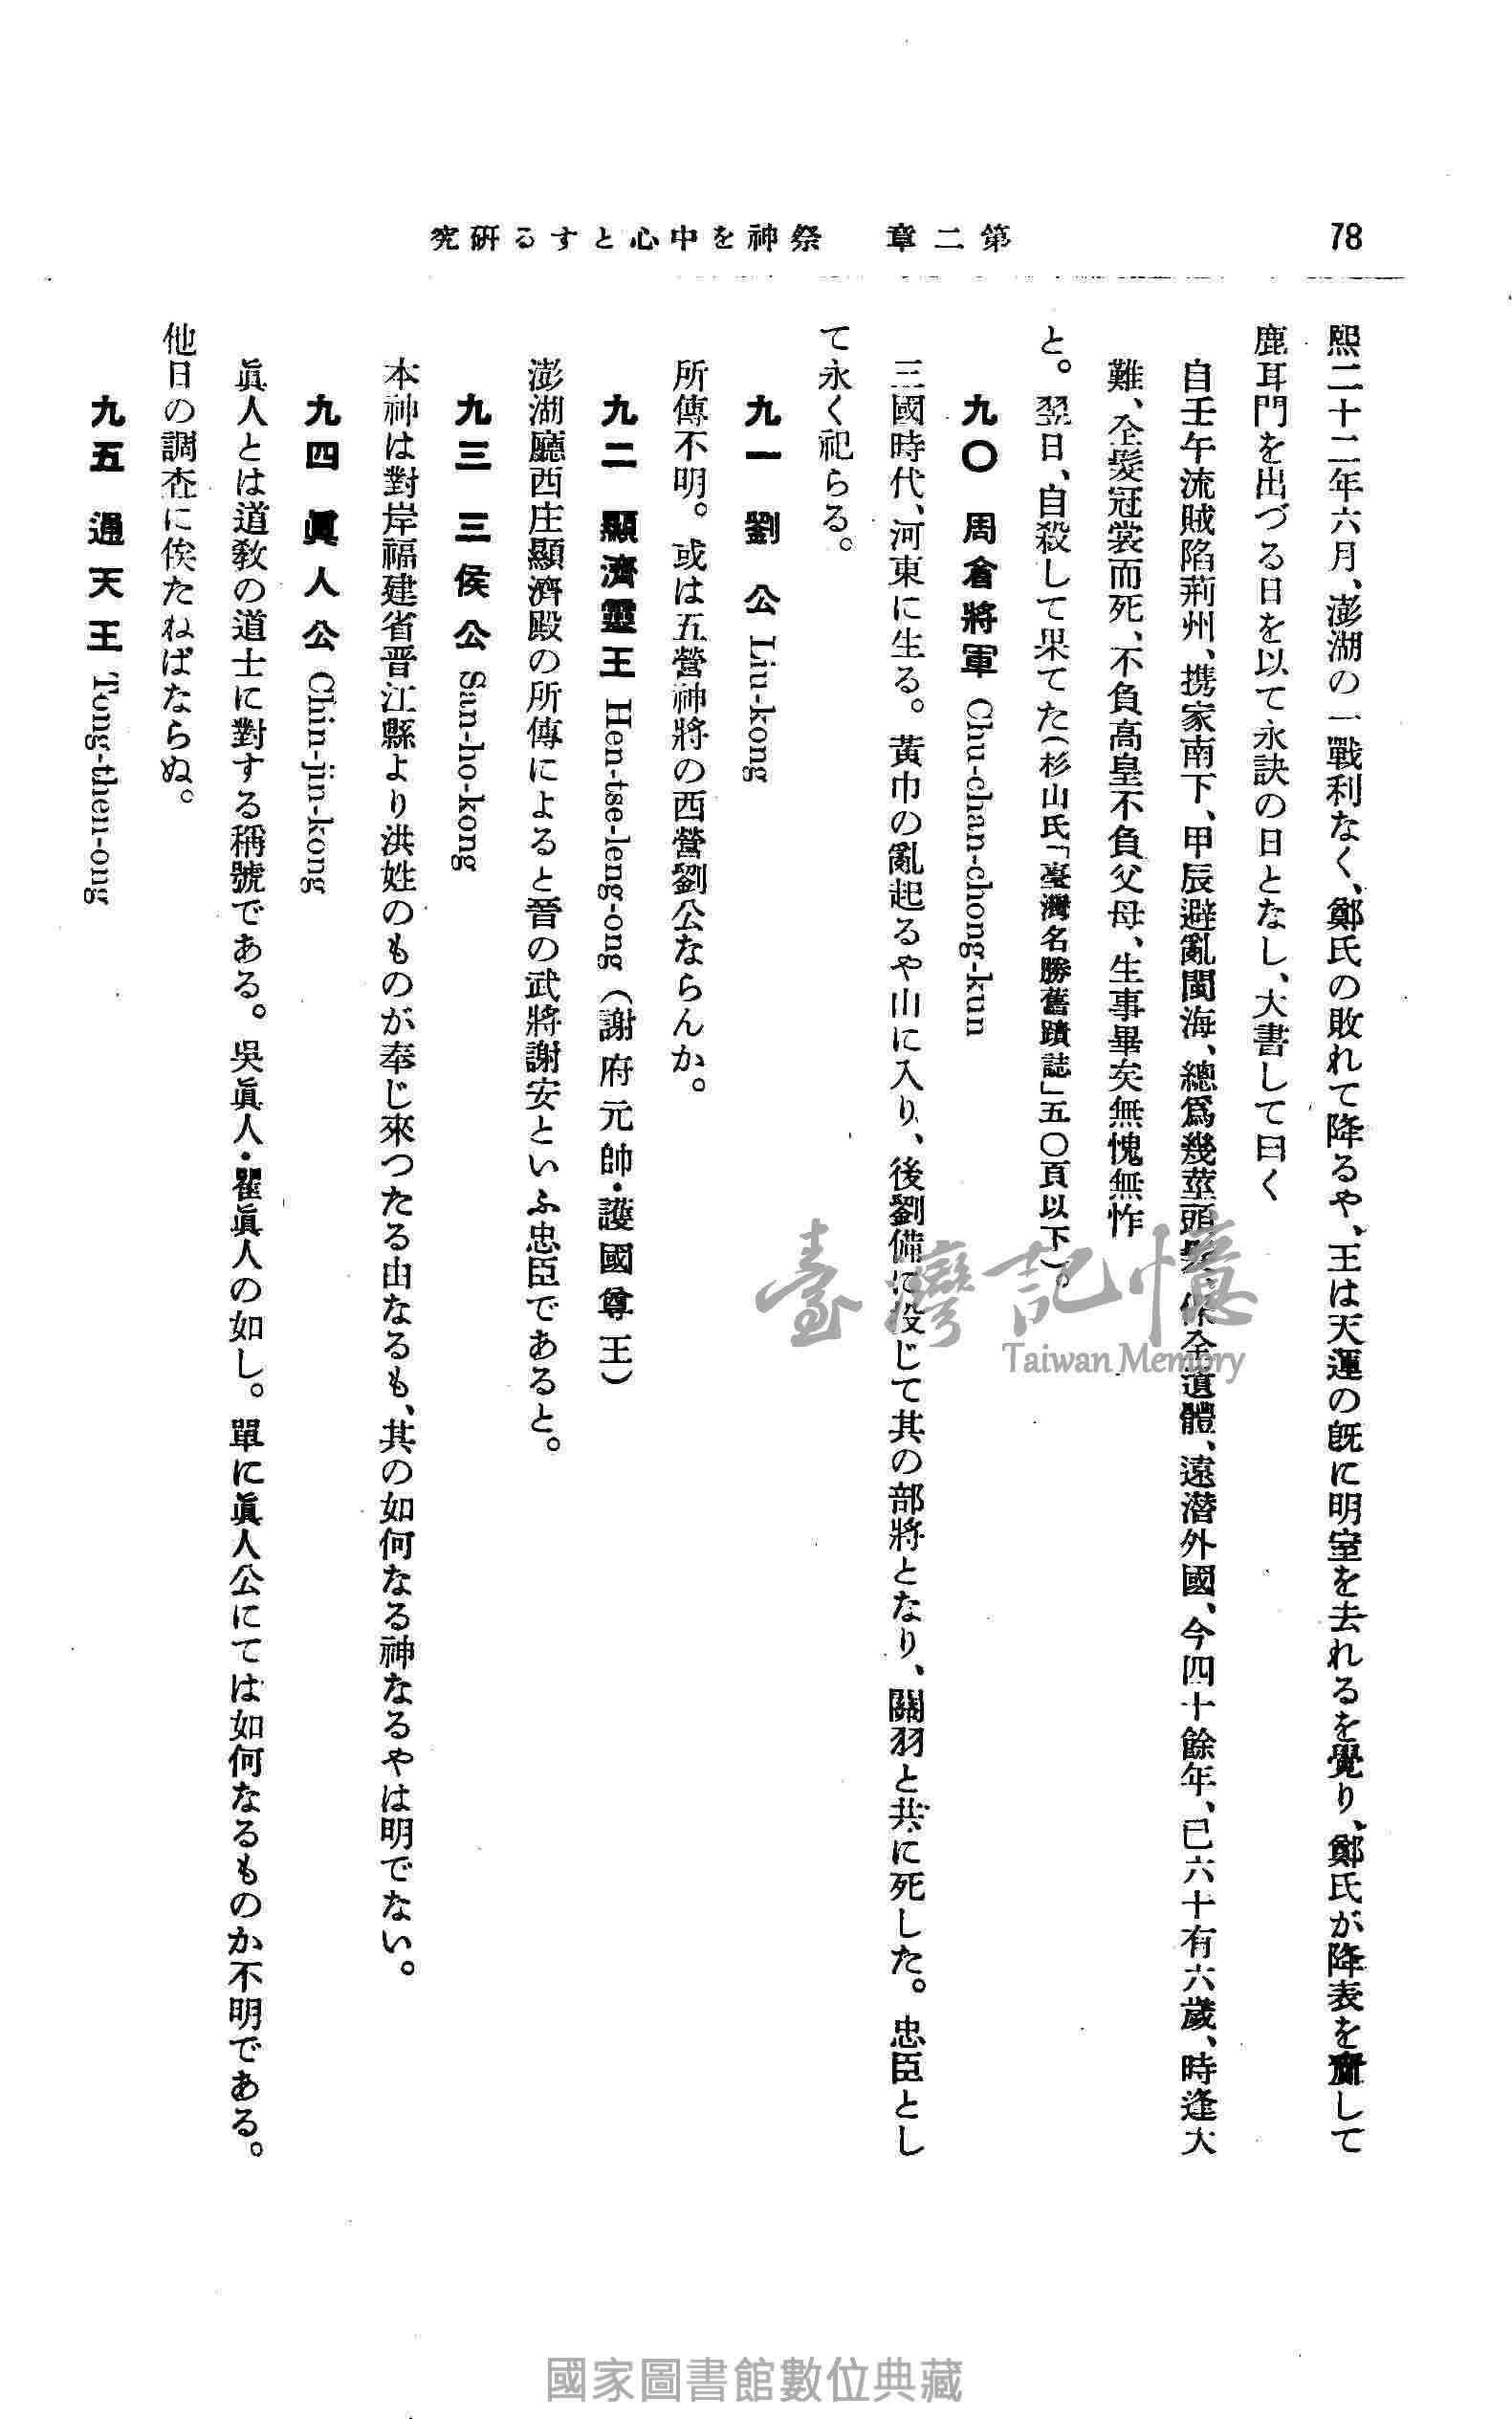 78
第二章　祭神を中心とする研究
熙二十二年六月、澎湖の一戰利なく、鄭氏の敗れて降るや、王は天運の既に明室を去れるを覺り、鄭氏が降表を齎して
鹿耳門を出づる日を以て永訣の日となし、大書して曰く
自壬午流賊陷荊州、携家南下、甲辰避亂閩海、總爲幾莖頭髮、保全遺體、遠潜外國、今四十餘年、已六十有六歲、時逢大
難、全髮冠裳而死、不負高皇不負父母、生事畢矣無愧無怍
と。翌日、自殺して果てた(杉山氏「臺灣名勝舊蹟誌」五〇頁以下)。
九〇　周倉將軍 Chu-chan-chong-kun
三國時代、河東に生る。黃巾の亂起るや山に入り、後劉備に投じて其の部將となり、關羽と共に死した。忠臣とし
て永く祀らる。
九一　劉　公 Liu-kong
所傳不明。或は五營神將の西營劉公ならんか。
九二　顯濟靈王 Hen-tse-leng-ong (謝府元帥・護國尊王)
澎湖廳西庄顯濟殿の所傳によると晉の武將謝安といふ忠臣であると。
九三　三侯公 San-ho-kong
本神は對岸福建省晋江縣より洪姓のものが奉じ來つたる由なるも、其の如何なる神なるやは明でない。
九四　眞人公 Chin-jin-kong
眞人とは道敎の道士に對する稱號である。吳眞人・翟眞人の如し。單に眞人公にては如何なるものか不明である。
他日の調査に俟たねばならぬ。
九五　通天王 Tong-then-ong
臺灣記憶
Taiwan Memory
國家圖書館數位典藏